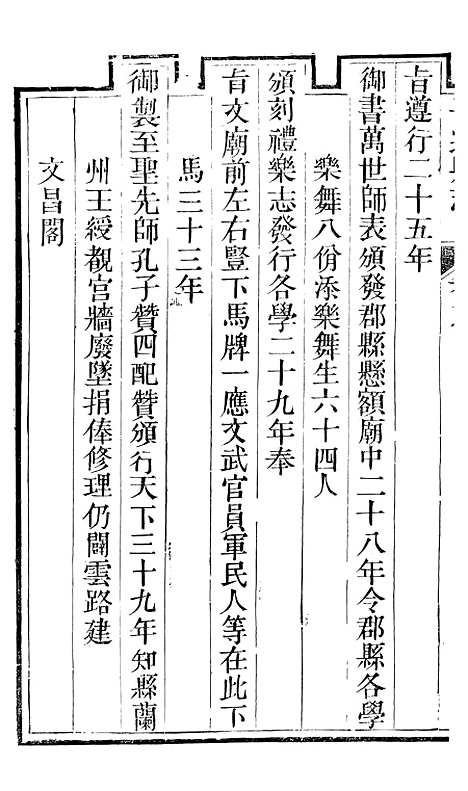 旨遵行二十五年
御書萬世師表頒發郡縣懸額廟中二十八年令郡縣各學
樂舞八佾添樂舞生六十四人
頒刻禮樂志發行各學二十九年奉
旨文廟前左右豎下馬牌一應文武官員軍民人等在此下
馬三十三年
御製至聖先師孔子贊四配贊頒行天下三十九年知縣蘭
州王綬覩宮牆廢墜捐俸修理仍闢雲路建
文昌閣